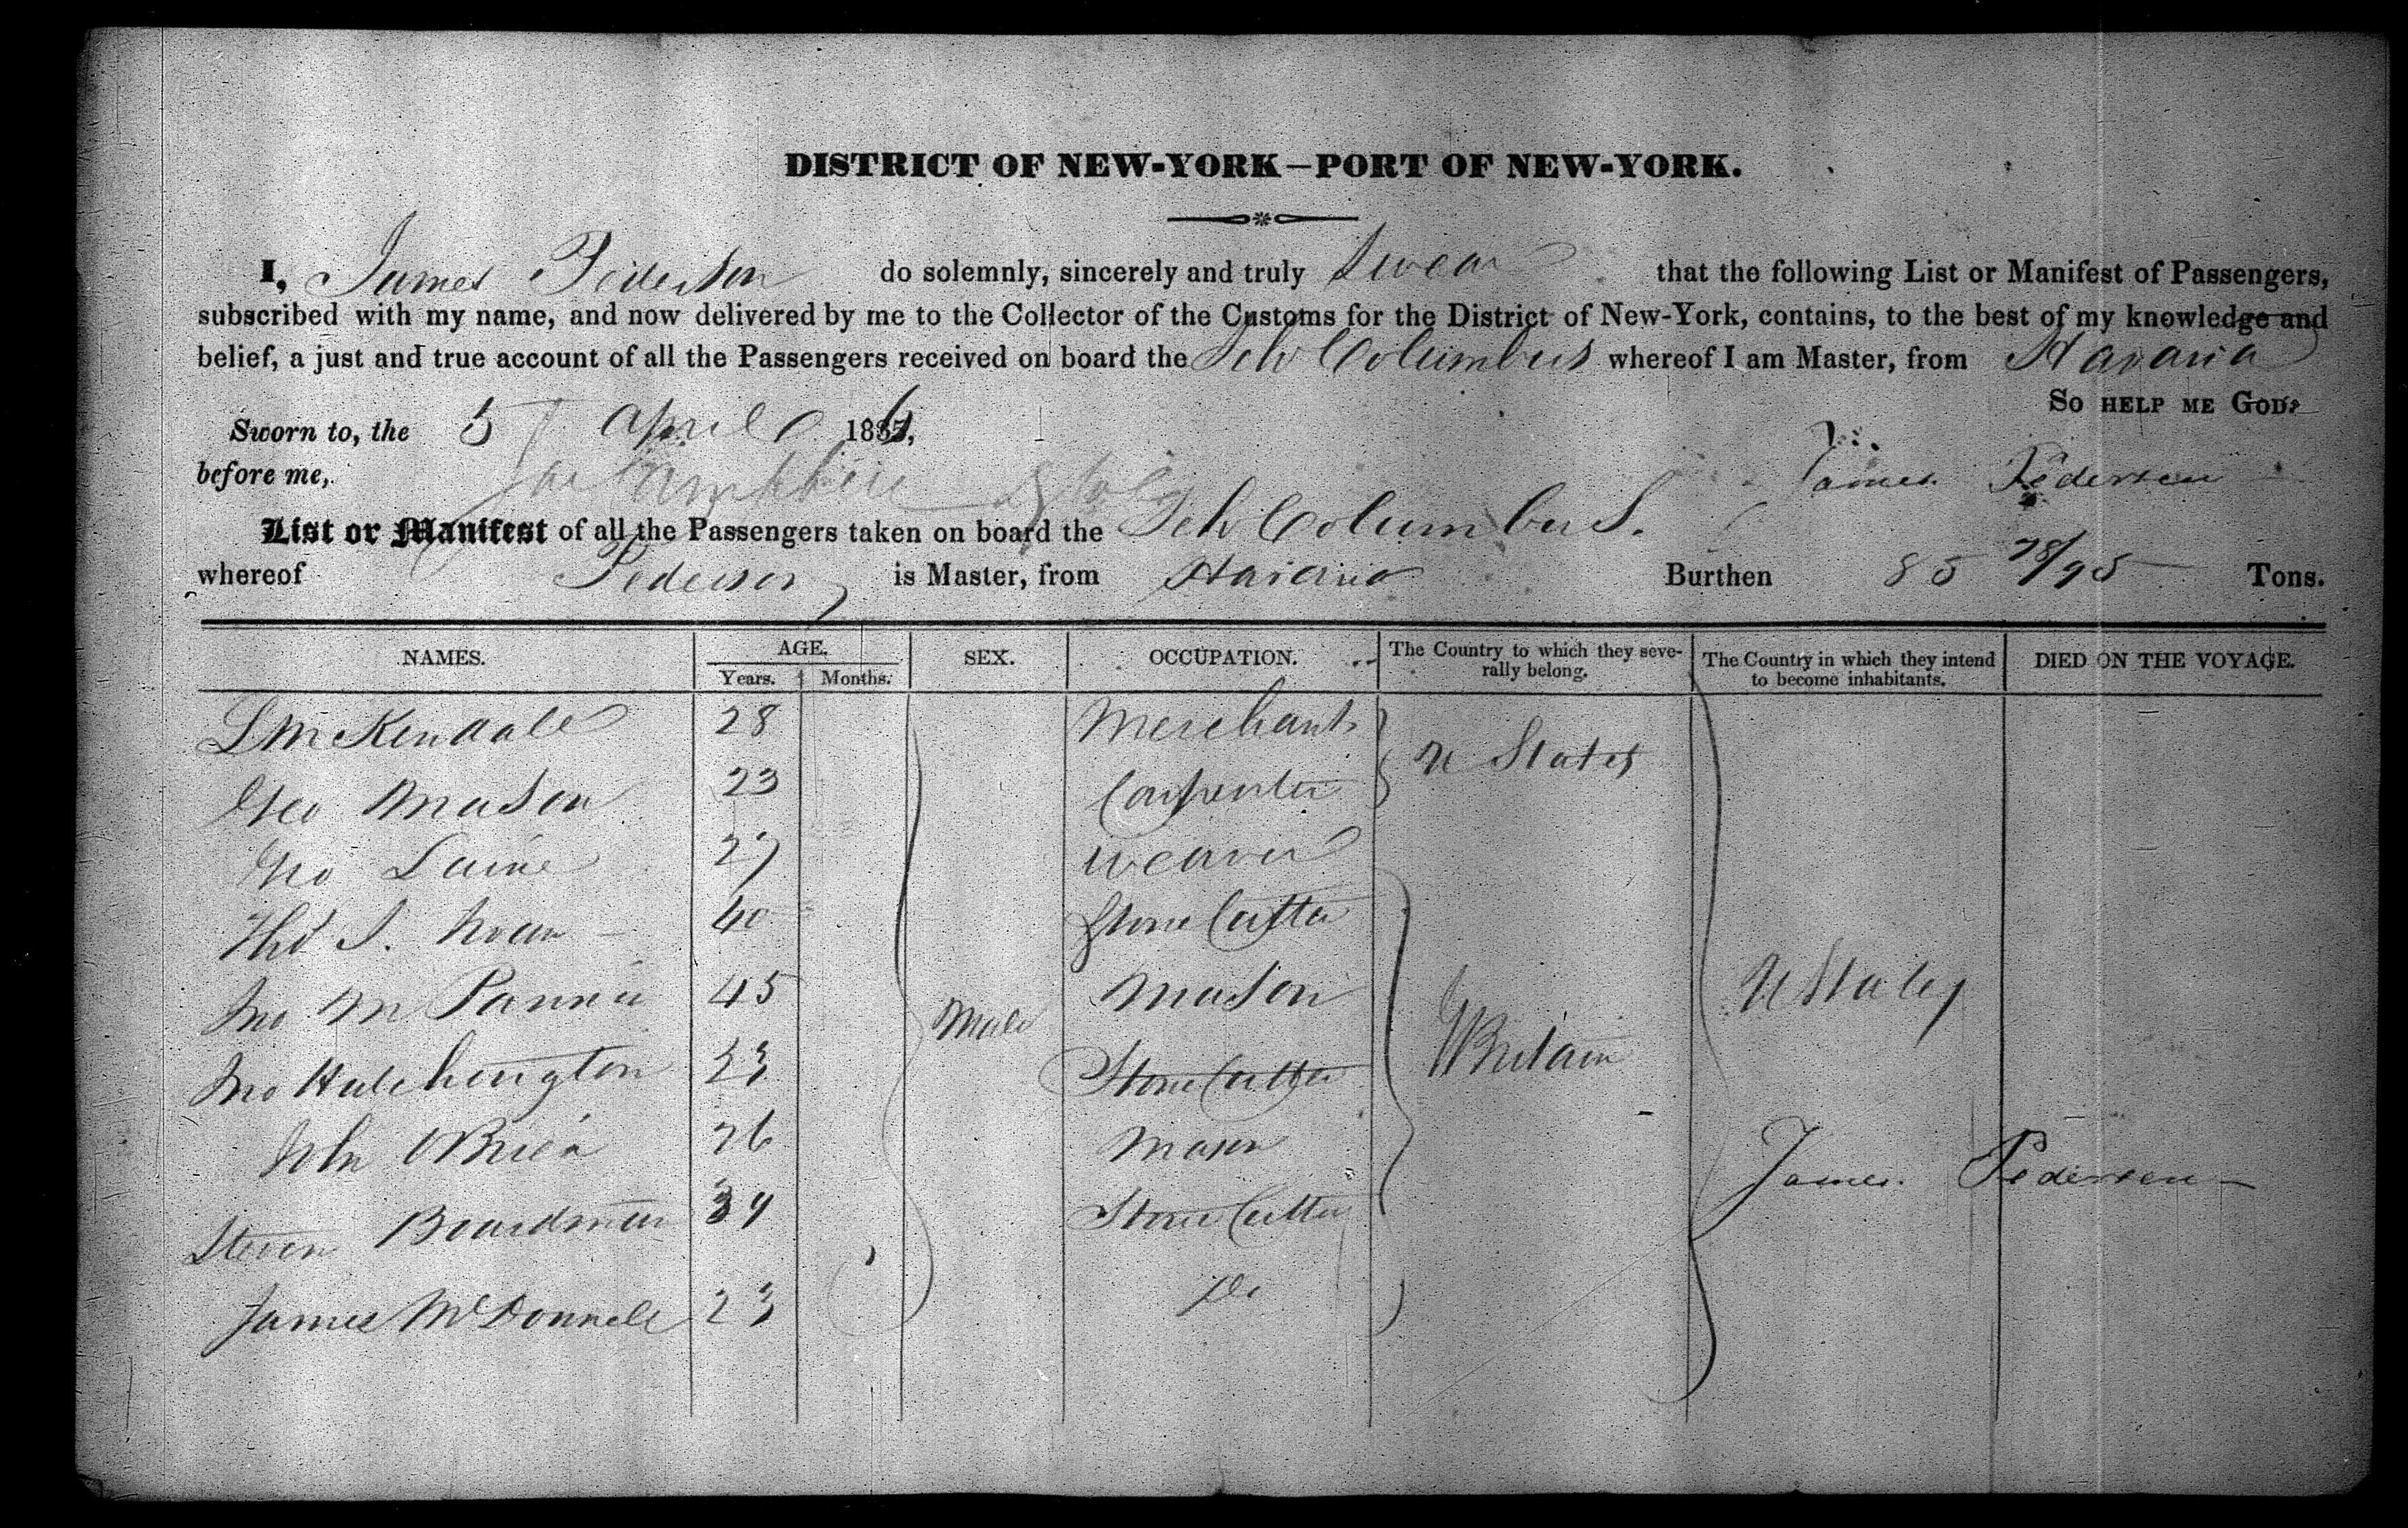 DISTRICT OF NEW-YORK—PORT OF NEW-YORK.
I, James Pederson do solemnly, sincerely and truly Swear that the following List or Manifest of Passengers,
subscribed with my name, and now delivered by me to the Collector of the Customs for the District of New-York, contains, to the best of my knowledge and
belief, a just and true account of all the Passengers received on board the Sch Columbus whereof I am Master, from Havana
So HELP ME GOD.
Sworn to, the 5 April 1836,
before me,
James Pedersen
List or Manifest of all the Passengers taken on board the Sch Columbus.
whereof Pederson is Master, from Havana Burthen 85 78/95 Tons.
NAMES. AGE. SEX. OCCUPATION. The Country to which they seve-rally belong. The Country in which they intend to become inhabitants. DIED ON THE VOYAGE.
Years. Months.
L McKendall 28 Merchant
U States
Geo Mason 23 Carpenter
Geo Laine 27 Weaver
Tho S. 40 Stone Cutter
Jno M 45 Mason
Male
U States
Jno Hutchengton 23 Stone Cutter
G Britain
John OBrien 26 Mason
James Pedersen
Steven Boardman 39 Stone Cutter
James McDonnell 23 Do